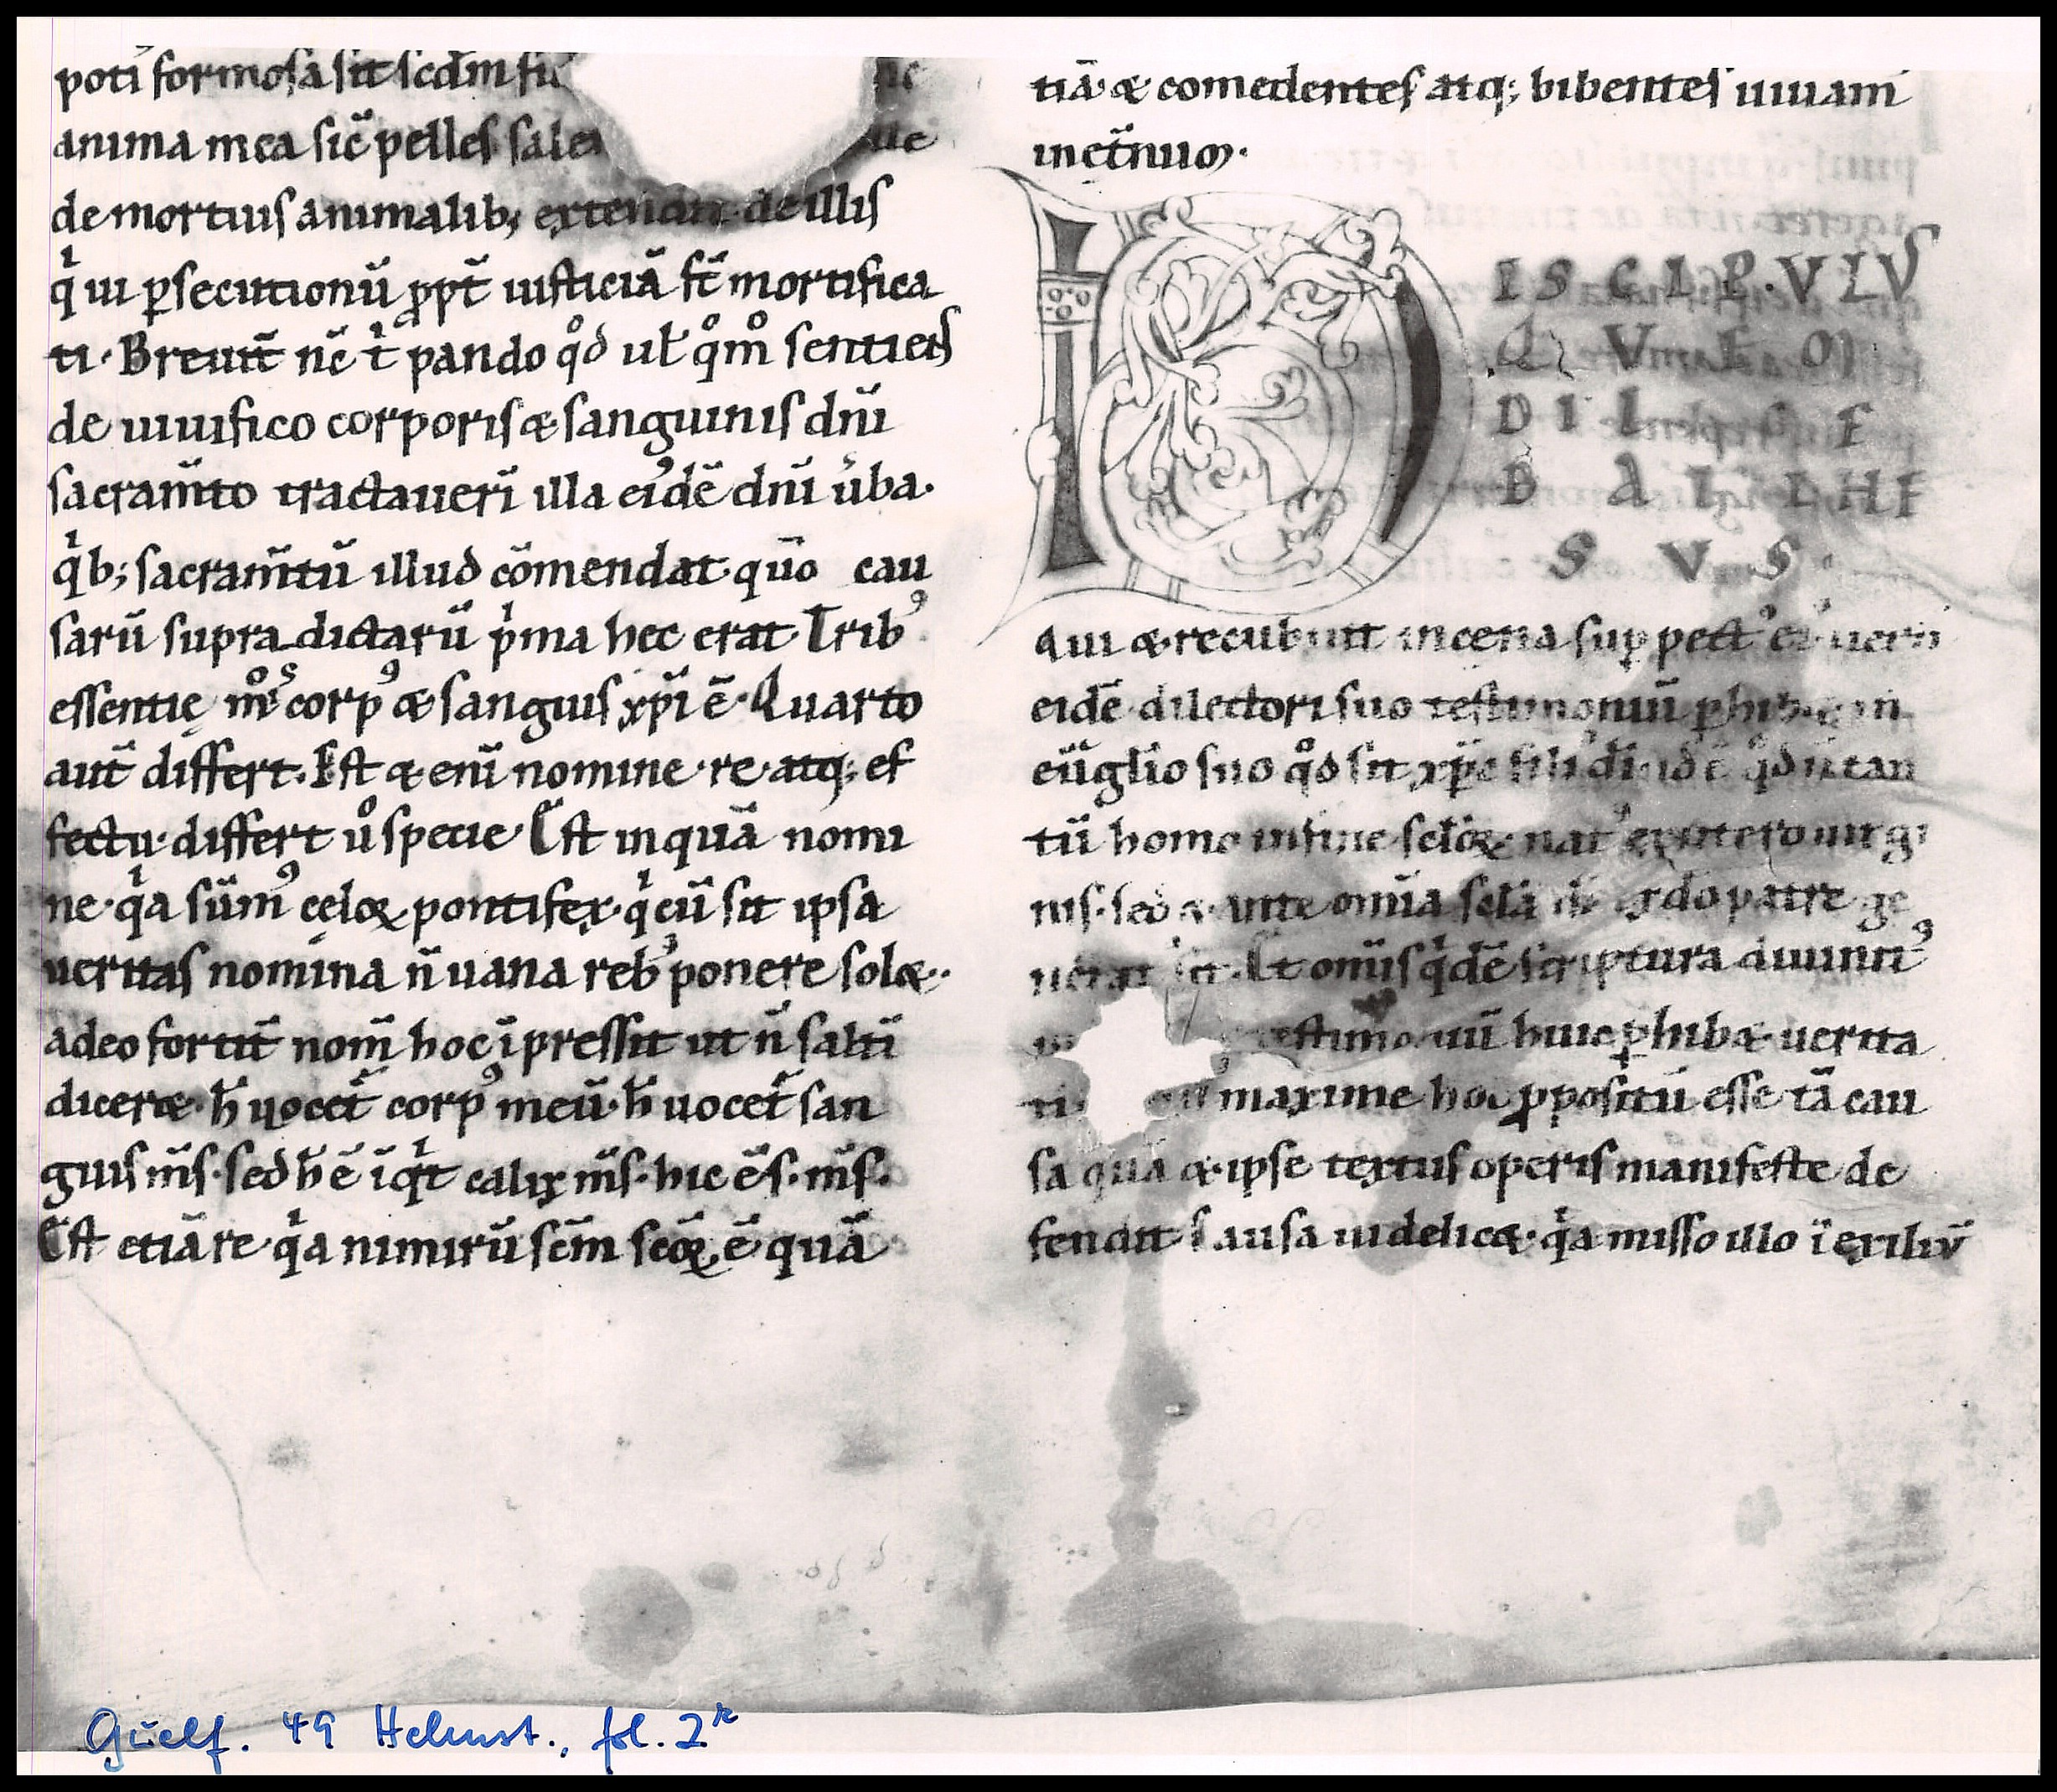 poti formosa sit scdm fi
anima mea sic̄ pelles sale ue
de mortuis animalib; de illis
qͥ ui psecutionū ppt̄ iusticiā st̄ mortifica
ti· Breuit̄ nc̄ tͥ pando qͦd ul̵ qͦm sentiēs
de uiuifico corporis & sanguinis dn̄i
sacram̄to tractaueri illa eiꝰdē dn̄i úba·
qͥb; sacram̄tū illud cōmendat· quō cau
sarū supra dictarū pͥma hec erat· Tribꝰ
essentie corpꝰ & sanguis xp̄i ē· Quarto
aut̄ differt. Est & eni nomine· re· atq; ef
fectu· differt uͦ specie· Est inquā nomi
ne· qͥa sūmꝰ celoꝝ pontifex· qͥ cū sit ipsa
ueritas nomina n̄ uana rebꝰ ponere sol&··
adeo fortit̄ nom̄ hoc īpressit ut n̄ saltī
dicer&· h̄ uocet̄ corpꝰ meū· h̄ uocet̄ san
guis m̄s· sed h̄ ē īqͥt calix m̄s· hic ē s· m̄s·
Est etiā re· qͥa nimirū scm̄ scoꝝ ē quā
tiā· & comedentes atq; bibentes uiuam̄
inet̄nuꝫ·
DISCIP·VLVS
QVEM
DIL E
BAT IHE
SVS
Qui & recubuit in cena sup pectꝰ eiꝰ
eidē dilectori suo testimoniū phib& in
eūglio suo qͦd sit xp̄c filiꝰ di id ē qͦd n̄ tan
tū homo in fine scl̄oꝝ natꝰ ex utero uirgi
nis· sed & ante omīa scl̄a patre ge
sit· Et om̄is qͥdē scriptura diuinitꝰ
testimoniū huic phib& uerita
ti maxime hoc ppositū esse tā cau
sa quā & ipse textus operis manifeste de
fendit Causa uidelic&· qͥa misso illo ī exiliū
Guelf. 49 Helmst., fol. 2r